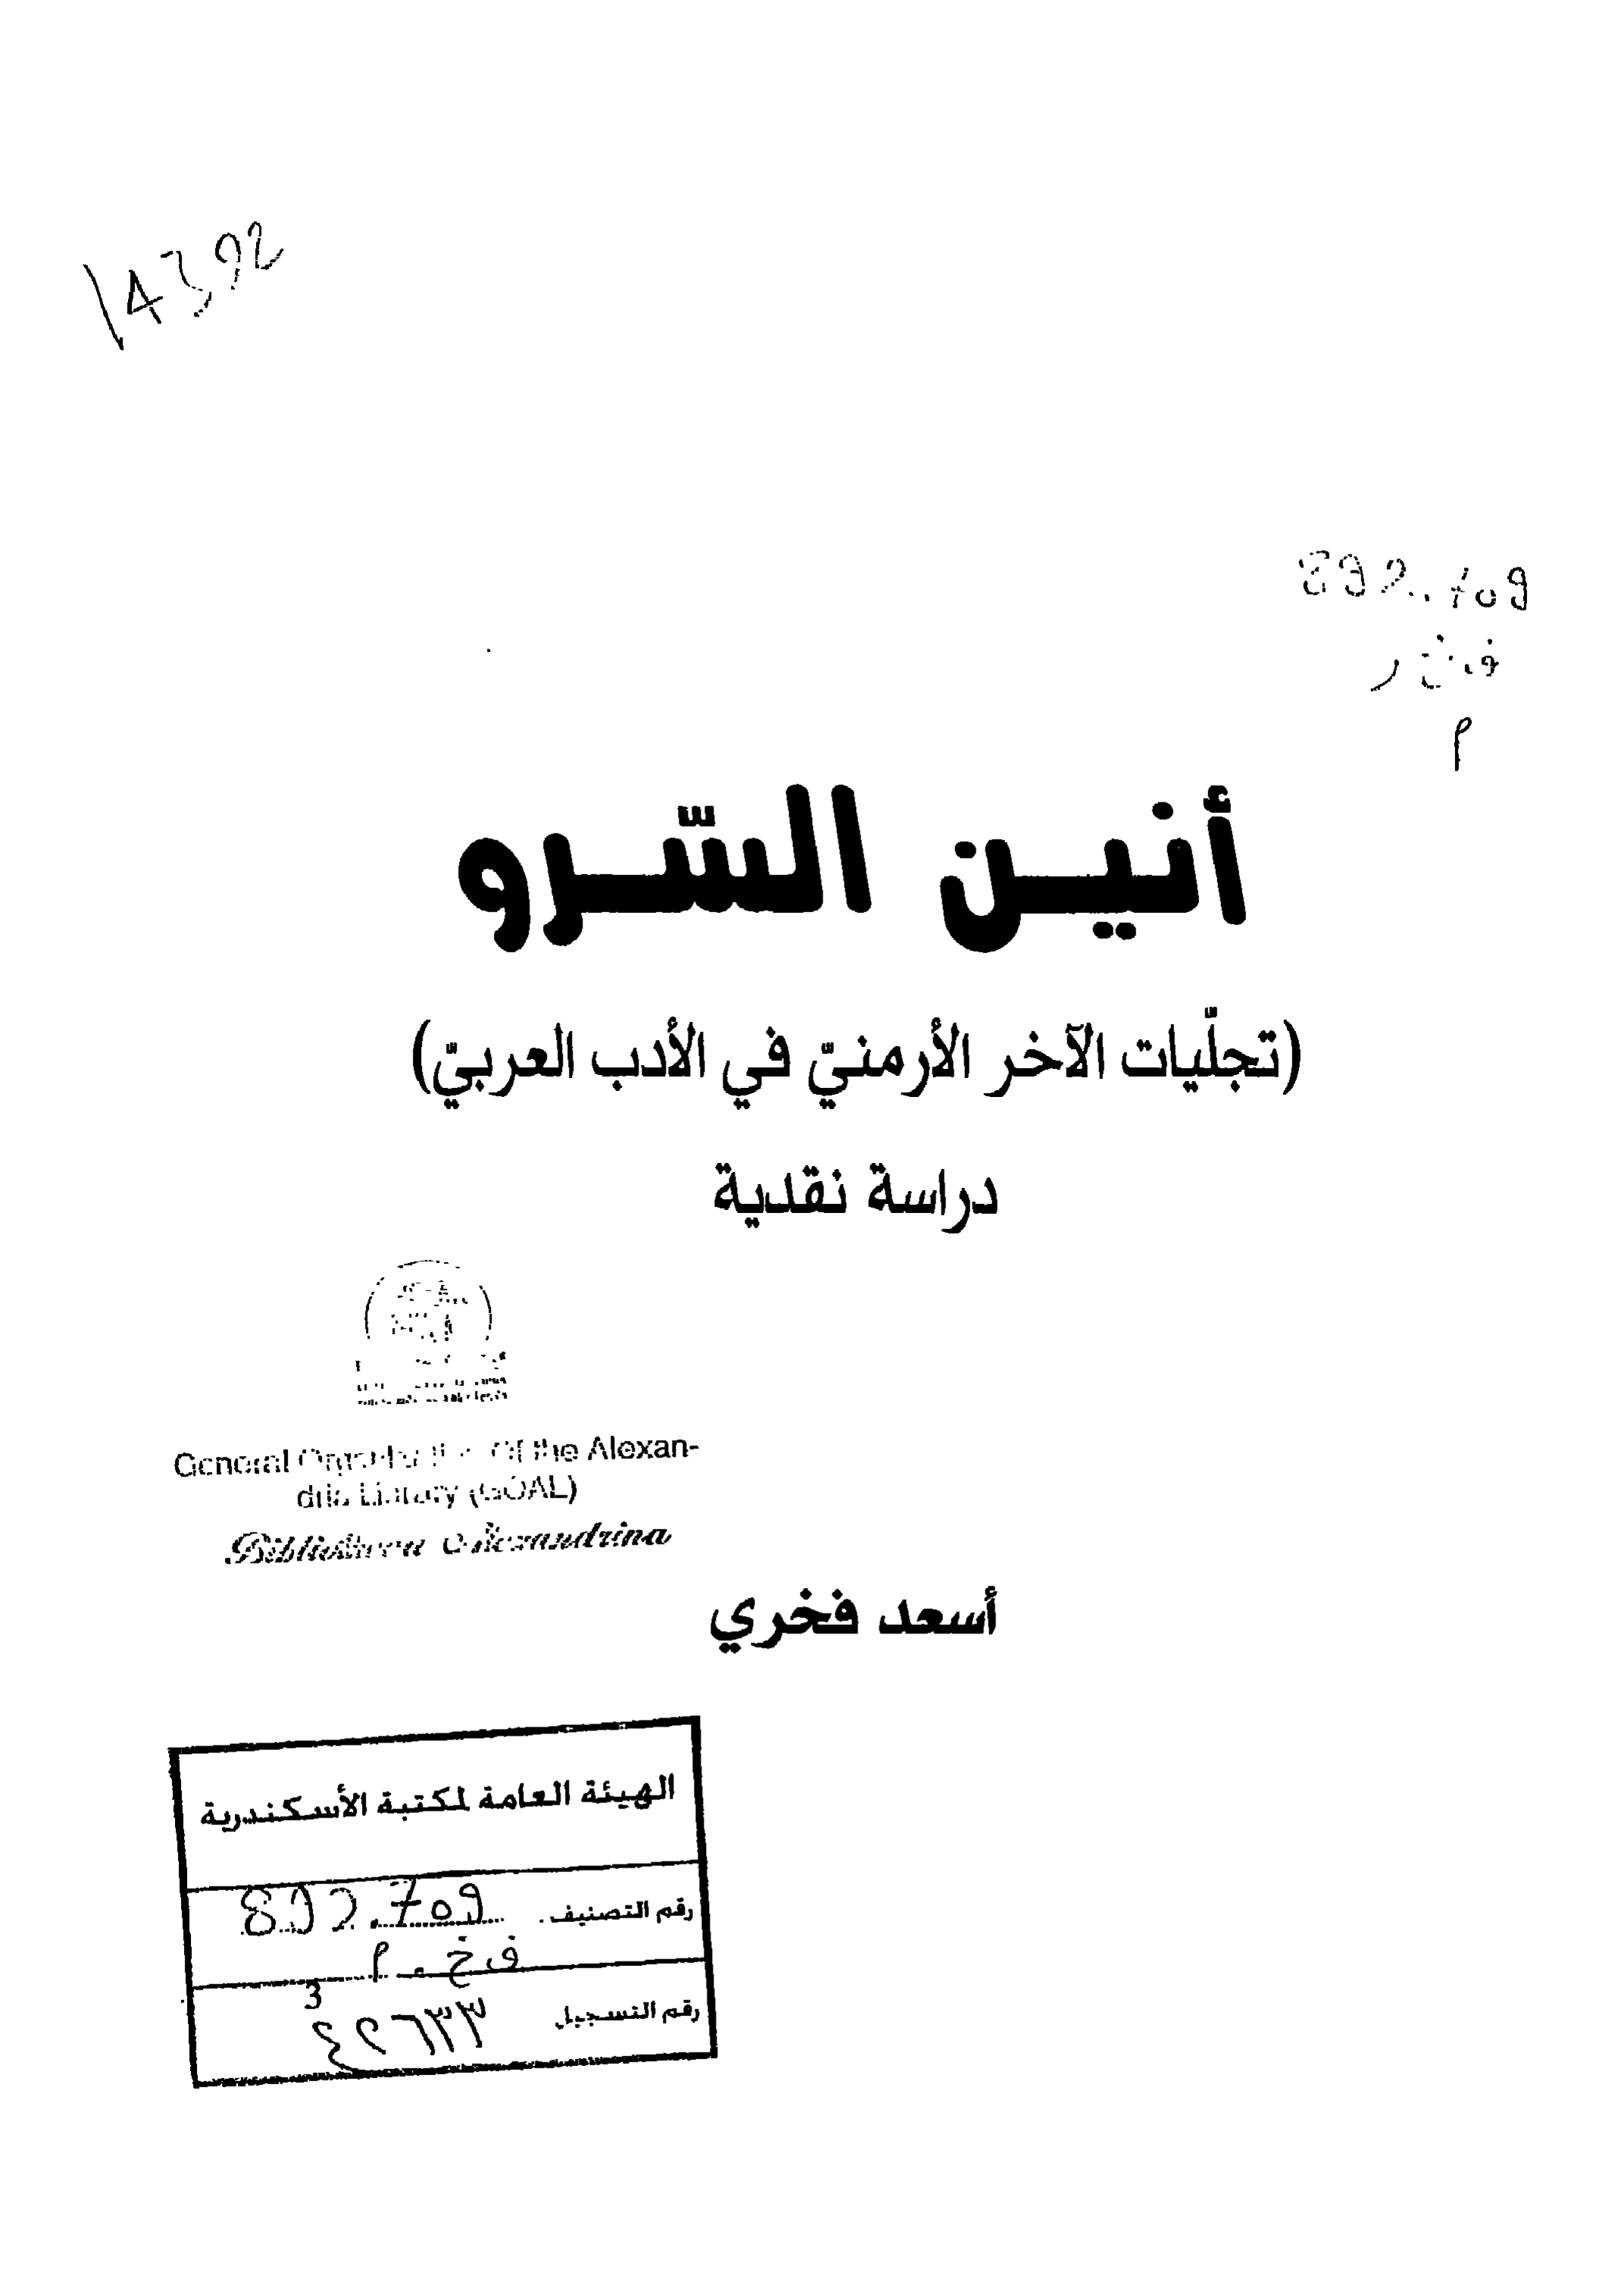 14392
892.709
م
أنين السّرو
(تجلّيات الآخر الأرمنيّ في الأدب العربيّ)
دراسة نقدية
General Organization Of the Alexan-
dria Library (GOAL)
Bibliotheca Alexandrina
أسعد فخري
الهيئة العامة لمكتبة الأسكندرية
رقم التصنيف 892.709
ف خ . م
3
رقم التسجيل ٤٢٦٣٣